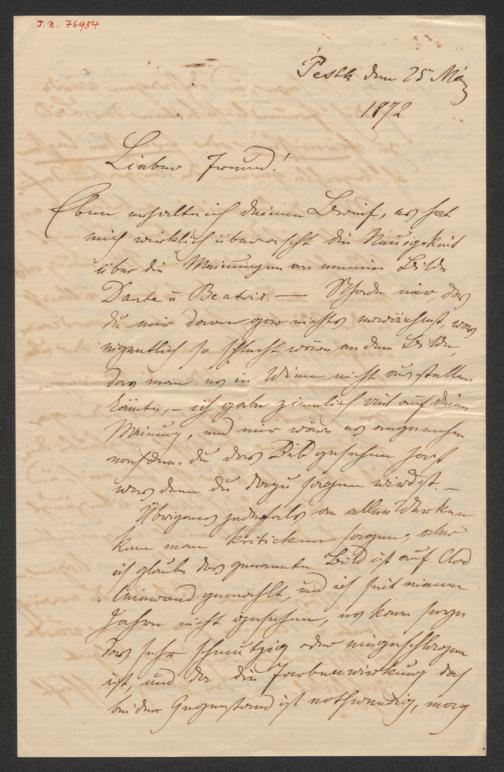 J.N. 76984
Pesth den 25 März
1872
Lieber Freund!
Eben erhalte ich deinen Brief, es hat
mich wirklich überrascht die Neuigkeit
über die Meinungen an meinem Bilde
Dante u Beatrix. — Schade nur das
du mir davon gar nichts erwähnst, was
eigentlich so schlecht wäre an dem Bilde,
das man es in Wien nicht ausstellen
könnte, – ich gebe ziemlich viel auf deine
Meinung, und mir wäre es angenehm
nachdem du das Bild gesehen hast
was denn du dazu sagen wirdst. –
Übrigens jedenfals an allen Werken
kan man kriticken sagen, aber
ich glaube das genannte Bild ist auf
Leinwand gemahlt, und ich seit einem
Jahre nicht gesehen, es kan seyn
das sehr schmutzig oder eingeschlagen
ist, und da die Farbenwirkung das
bei der Gegenstand ist nothwendig, mag